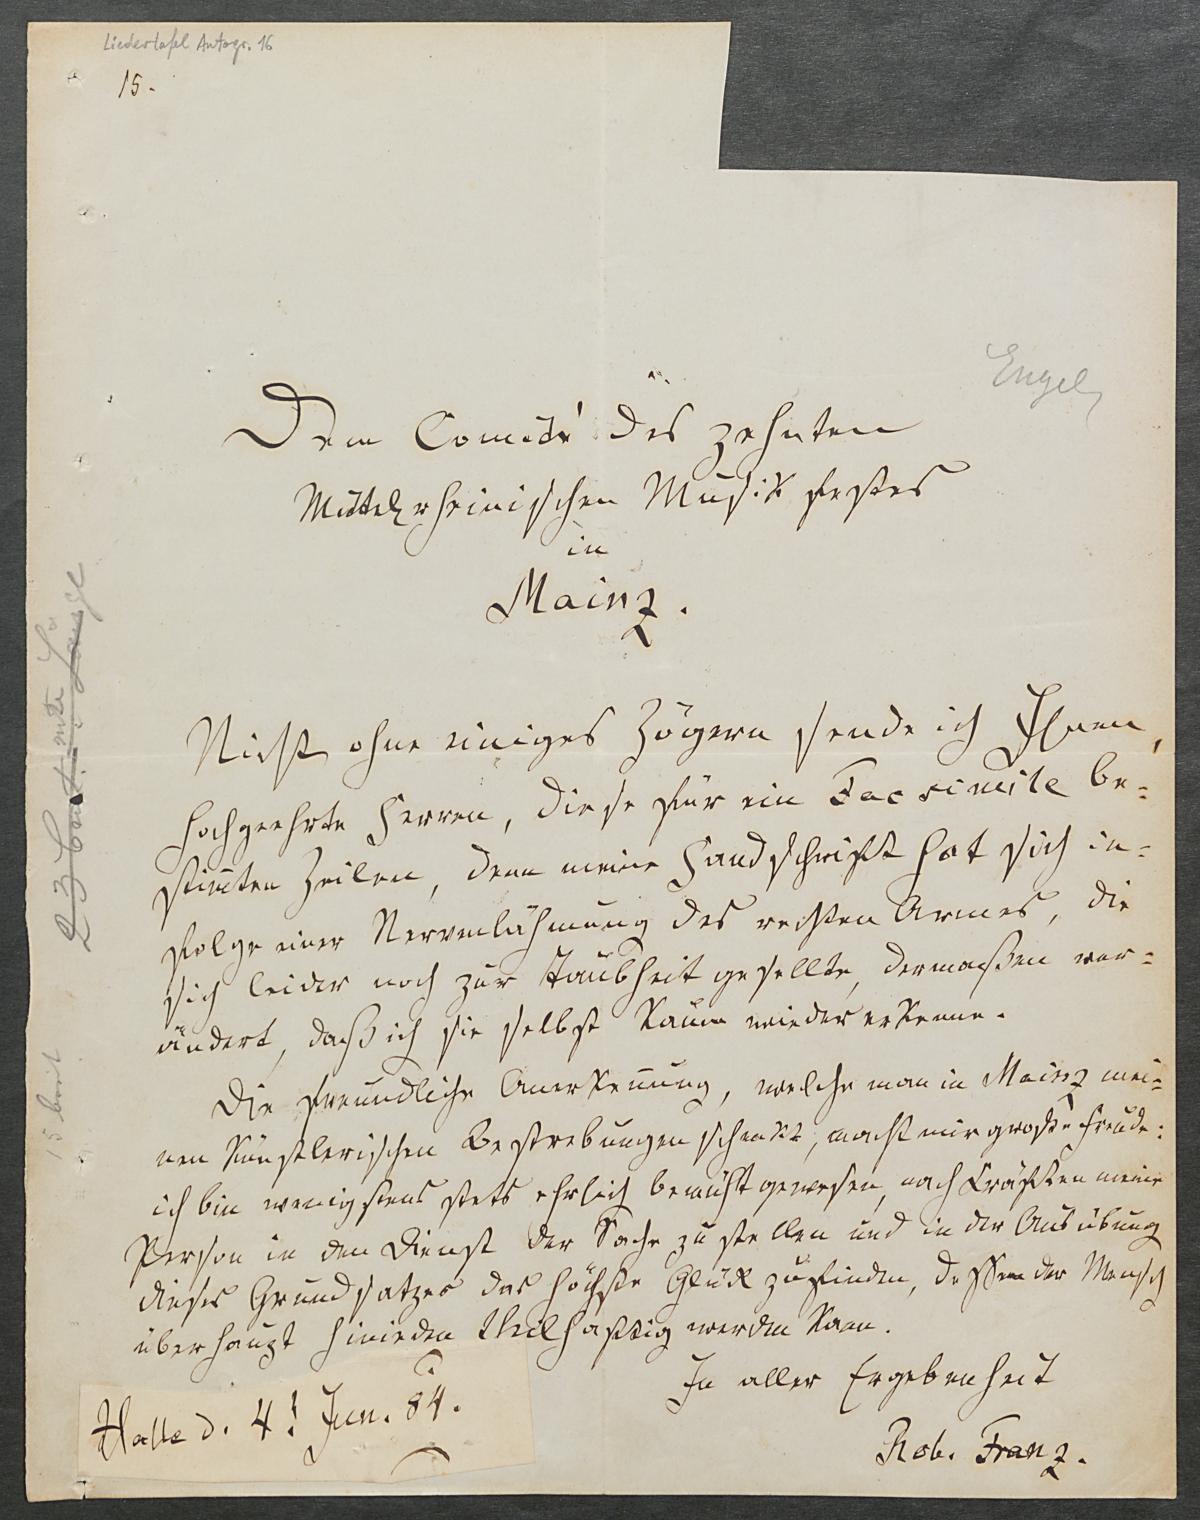 Liedertafel Autogr. 16
15.
Engel
Dem Comité des zehnten
Mittelrheinischen Musikfestes
in
Mainz.
Nicht ohne einiges Zögern sende ich Ihnen,
hochgeehrte Herren, diese für ein Facsimile be-
stimten Zeilen, denn meine Handschrift hat sich in-
folge einer Nervenlähmung des rechten Armes, die
sich leider noch zur Taubheit gesellte, dermaßen ver-
ändert, daß ich sie selbst kaum wiedererkenne.
Die freundliche Anerkennung, welche man in Mainz mei-
nen künstlerischen Bestrebungen schenkt, macht mir große Freude:
ich bin wenigstens stets ehrlich bemüht gewesen, nach Kräften meine
Person in den Dienst der Sache zu stellen und in der Ausübung
dieses Grundsatzes das höchste Glück zu finden, dessen der Mensch
überhaupt hinieden theilhaftig werden kann.
In aller Ergebenheit
Rob. Franz.
Halle d. 4! Jun. 84.
15 breit